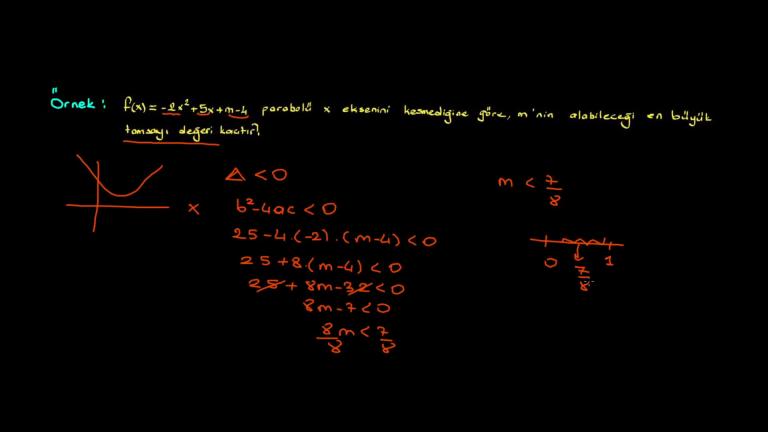 Örnek: f(x) = -2x²+5x+m-4 parabolü x eksenini kesmediğine göre, m'nin alabileceği en büyük
tamsayı değeri kaçtır?
Δ < 0
x b²-4ac < 0
25-4.(-2).(m-4) < 0
25+8.(m-4) < 0
25+8m-32 < 0
8m-7 < 0
8m/8 < 7/8
m < 7/8
0 7/8 1